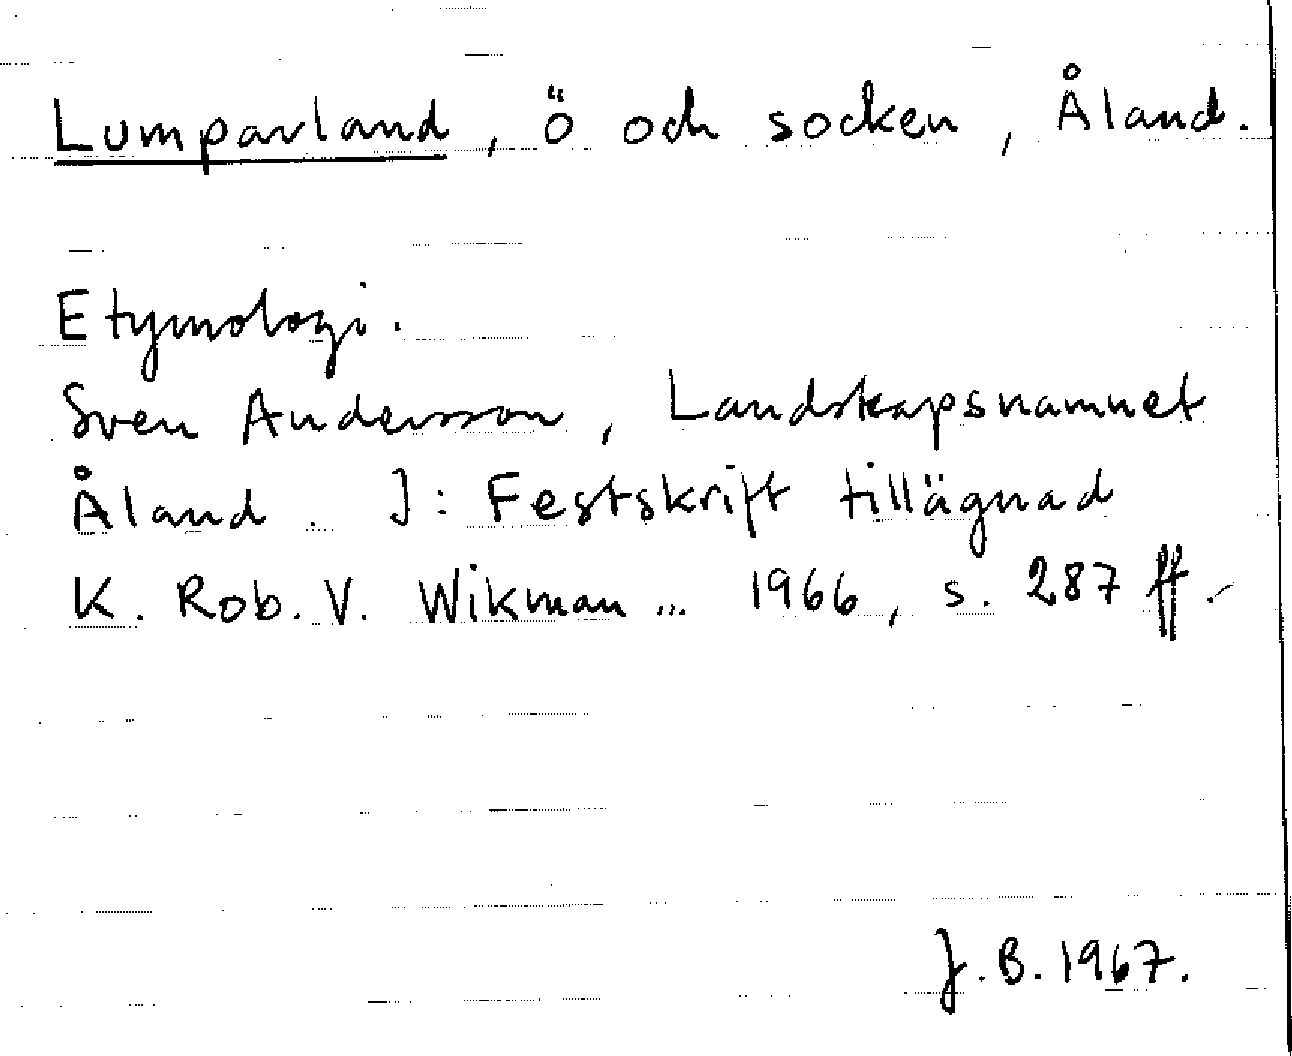 Lumparland, ö och socken, Åland.
Etymologi.
Sven Andersson, Landskapsnamnet
Åland. I: Festskrift tillägnad
K. Rob. V. Wikman ... 1966, s. 287 ff.
J. B. 1967.